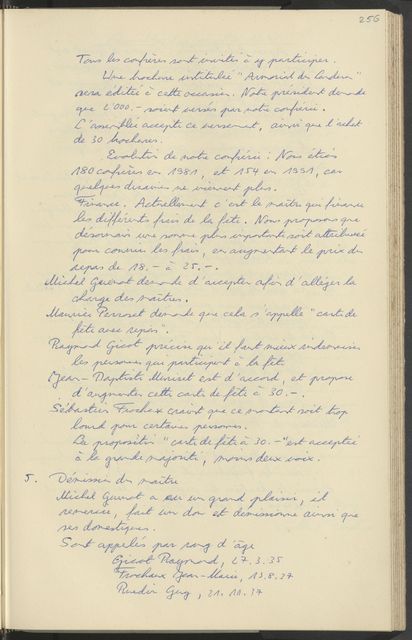 256
Tous les confrères sont invités à y participer.
Une brochure intitulée "Armorial du Landeron"
sera éditée à cette occasion. Notre président demande
que 2'000.- soient versés par notre confrérie.
L'assemblée accepte ce versement, ainsi que l'achat
de 30 brochures.
Evolution de notre confrérie : Nous étions
180 confrères en 1981, et 154 en 1991, car
quelques dizaines ne viennent plus.
Finance : Actuellement c'est le maître qui finance
les différents frais de la fête. Nous proposons que
désormais une somme plus importante soit attribuée
pour couvrir les frais, en augmentant le prix du
repas de 18.- à 25.-.
Michel Guenot demande d'accepter afin d'alléger la
charge des maîtres.
Maurice Perroset demande que cela s'appelle "carte de
fête avec repas".
Raymond Gicot précise qu'il faut mieux
les personnes qui participent à la fête.
Jean-Baptiste Muriset est d'accord, et propose
d'augmenter cette carte de fête à 30.-.
Sébastien Frochaux craint que ce montant soit trop
lourd pour certaines personnes.
La proposition "carte de fête à 30.-" est acceptée
à la grande majorité, moins deux voix.
5. Démission du maître
Michel Guenot a eu un grand plaisir, il
remercie, fait un don et démissionne ainsi que
ses domestiques.
Sont appelés par rang d'âge
Gicot Raymond, 27.3.35
Frochaux Jean-Marie, 13.8.37
Guy, 31.10.37